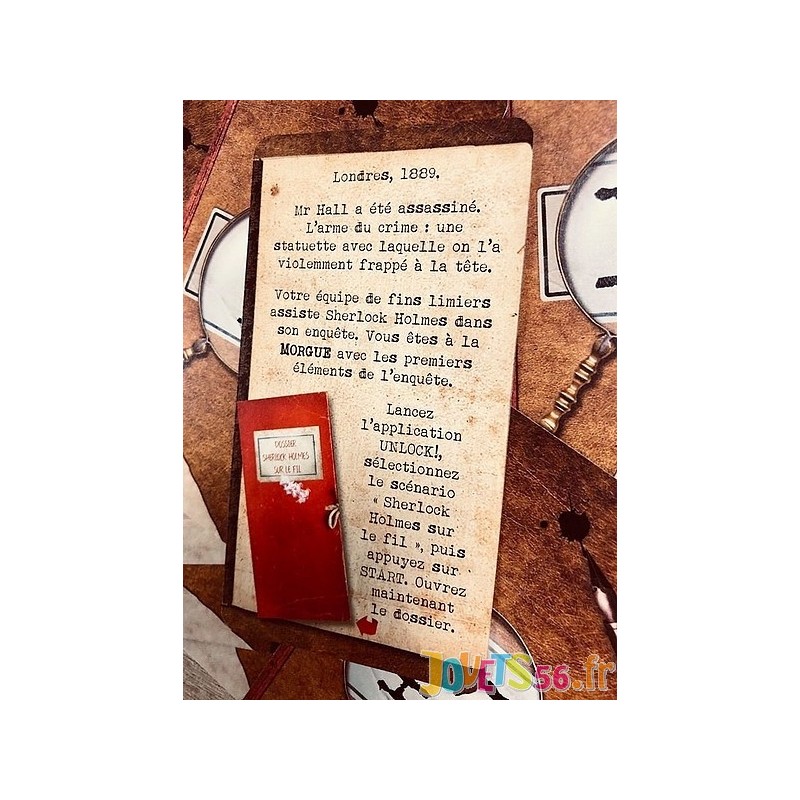 Londres, 1889.
Mr Hall a été assassiné.
L'arme du crime : une
statuette avec laquelle on l'a
violemment frappé à la tête.
Votre équipe de fins limiers
assiste Sherlock Holmes dans
son enquête. Vous êtes à la
MORGUE avec les premiers
éléments de l'enquête.
Lancez
l'application
UNLOCK!,
sélectionnez
le scénario
« Sherlock
Holmes sur
le fil », puis
appuyez sur
START. Ouvrez
maintenant
le dossier.
DOSSIER
SHERLOCK HOLMES
SUR LE FIL
JOUETS56.fr